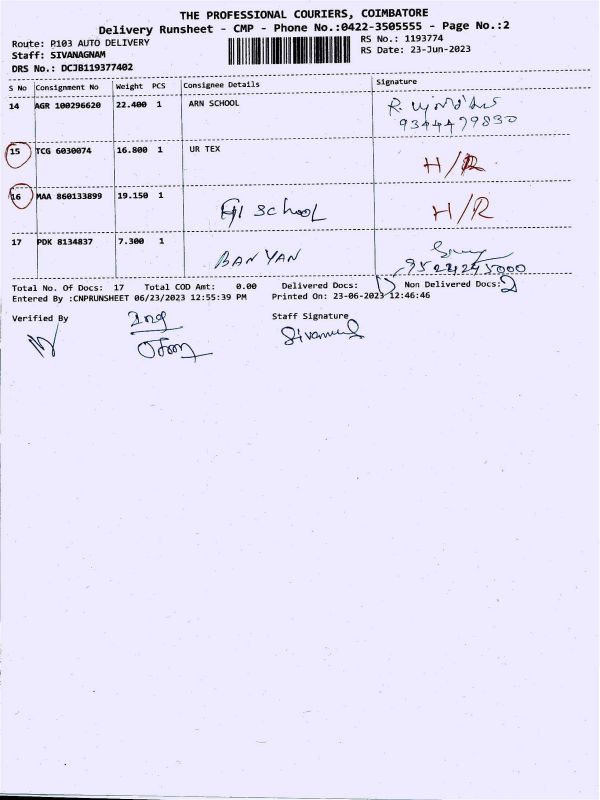 THE PROFESSIONAL COURIERS, COIMBATORE
Delivery Runsheet - CMP - Phone No.:0422-3505555 - Page No.:2
Route: P103 AUTO DELIVERY
RS No.: 1193774
Staff: SIVANAGNAM
RS Date: 23-Jun-2023
DRS No.: DCJB119377402
S No Consignment No Weight PCS Consignee Details Signature
14 AGR 100296620 22.400 1 ARN SCHOOL
9344479830
15 TCG 6030074 16.800 1 UR TEX H/R
16 MAA 860133899 19.150 1 SchooL H/R
17 PDK 8134837 7.300 1 BANYAN
Total No. Of Docs: 17 Total COD Amt: 0.00 Delivered Docs: Non Delivered Docs: 2
Entered By :CNPRUNSHEET 06/23/2023 12:55:39 PM Printed On: 23-06-2023 12:46:46
Verified By Staff Signature